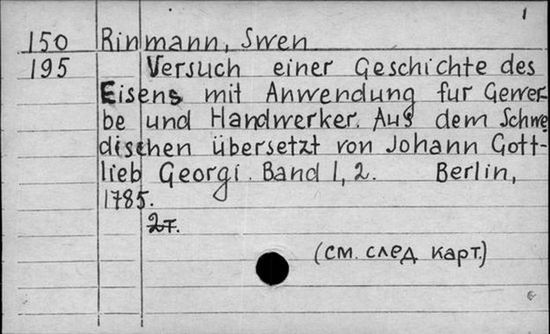 1
150 Rinmann, Swen
195 Versuch einer Geschichte des
Eisens mit Anwendung fur Gewer-
be und Handwerker. Aus dem Schwe
dischen übersetzt von Johann Gott-
lieb Georgi. Band 1, 2. Berlin,
1785.
2т.
(см. след карт.)